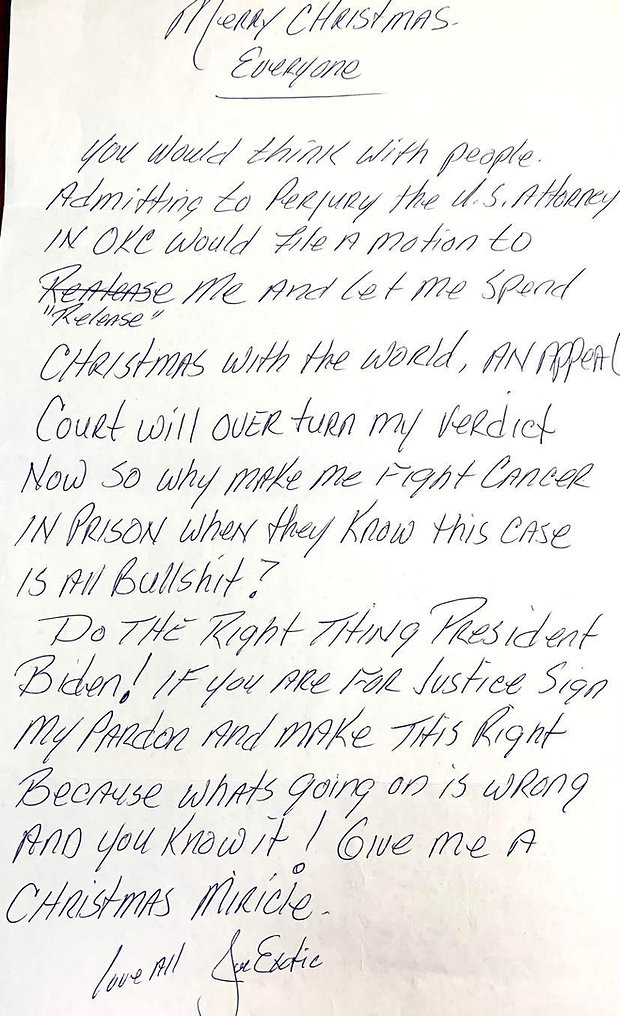 Merry CHRistmas.
Everyone
You would think with people.
Admitting to Perjury the U.S. Attorney
IN OKC would File A motion to
Realease me And Let me Spend
"Release"
CHRistmas with the world, AN Appeal
Court will OVER turn my Verdict
Now So why make me Fight Cancer
IN PRISON when they Know this case
Is All Bullshit?
Do THE Right THING President
Biden! IF you ARE FOR Justice Sign
My PARDON AND MAKE THis Right
Because whats going on is wrong
AND you Know it! Give me A
CHRistmas Miricle.
Love All Joe Exotic